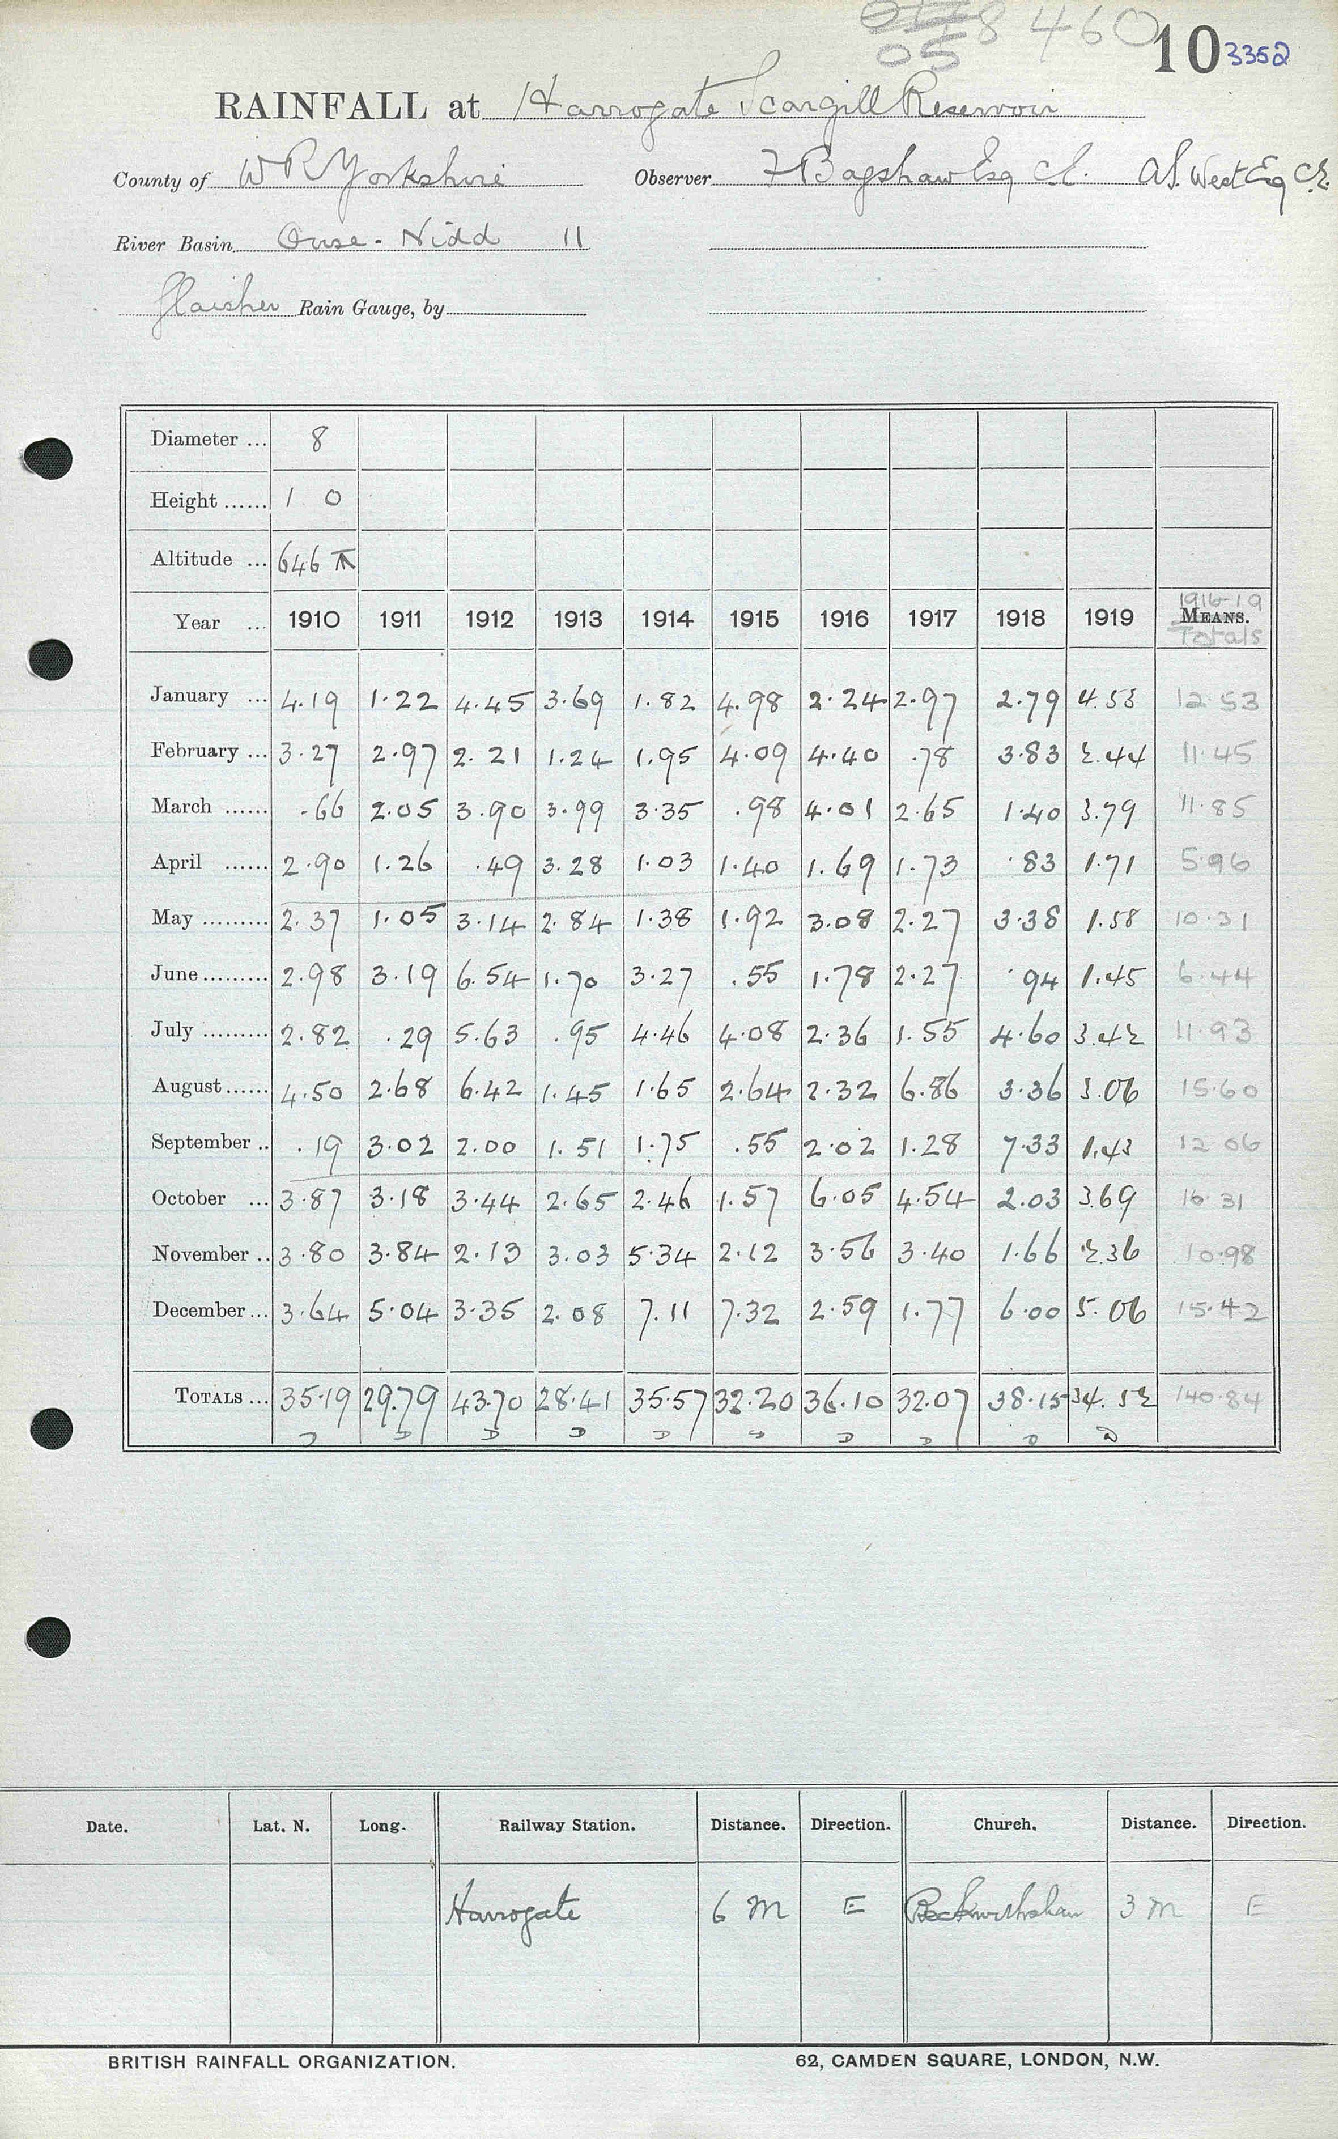 8460
05
10 3352
RAINFALL at Harrogate Scargill Reservoir
County of W R Yorkshire Observer F Bagshaw Esq C.E. A.S. West Esq C.E.
River Basin Ouse - Nidd 11
Glaisher Rain Gauge, by
Diameter ... 8
Height ...... 1 0
Altitude ... 646
1916-19
Year ... 1910 1911 1912 1913 1914 1915 1916 1917 1918 1919 MEANS.
Totals
January ... 4.19 1.22 4.45 3.69 1.82 4.98 2.24 2.97 2.79 4.53 12.53
February ... 3.27 2.97 2.21 1.24 1.95 4.09 4.40 .78 3.83 2.44 11.45
March ...... .66 2.05 3.90 3.99 3.35 .98 4.01 2.65 1.40 3.79 11.85
April ...... 2.90 1.26 .49 3.28 1.03 1.40 1.69 1.73 .83 1.71 5.96
May ......... 2.37 1.05 3.14 2.84 1.38 1.92 3.08 2.27 3.38 1.58 10.31
June ......... 2.98 3.19 6.54 1.70 3.27 .55 1.78 2.27 .94 1.45 6.44
July ......... 2.82 .29 5.63 .95 4.46 4.08 2.36 1.55 4.60 3.42 11.93
August ...... 4.50 2.68 6.42 1.45 1.65 2.64 2.32 6.86 3.36 3.06 15.60
September .. .19 3.02 2.00 1.51 1.75 .55 2.02 1.28 7.33 1.43 12.06
October ... 3.87 3.18 3.44 2.65 2.46 1.57 6.05 4.54 2.03 3.69 16.31
November .. 3.80 3.84 2.13 3.03 5.34 2.12 3.56 3.40 1.66 2.36 10.98
December ... 3.64 5.04 3.35 2.08 7.11 7.32 2.59 1.77 6.00 5.06 15.42
TOTALS ... 35.19 29.79 43.70 28.41 35.57 32.20 36.10 32.07 38.15 34.52 140.84
Date. Lat. N. Long. Railway Station. Distance. Direction. Church. Distance. Direction.
Harrogate 6 M E Beckwithshaw 3 M E
BRITISH RAINFALL ORGANIZATION. 62, CAMDEN SQUARE, LONDON, N.W.